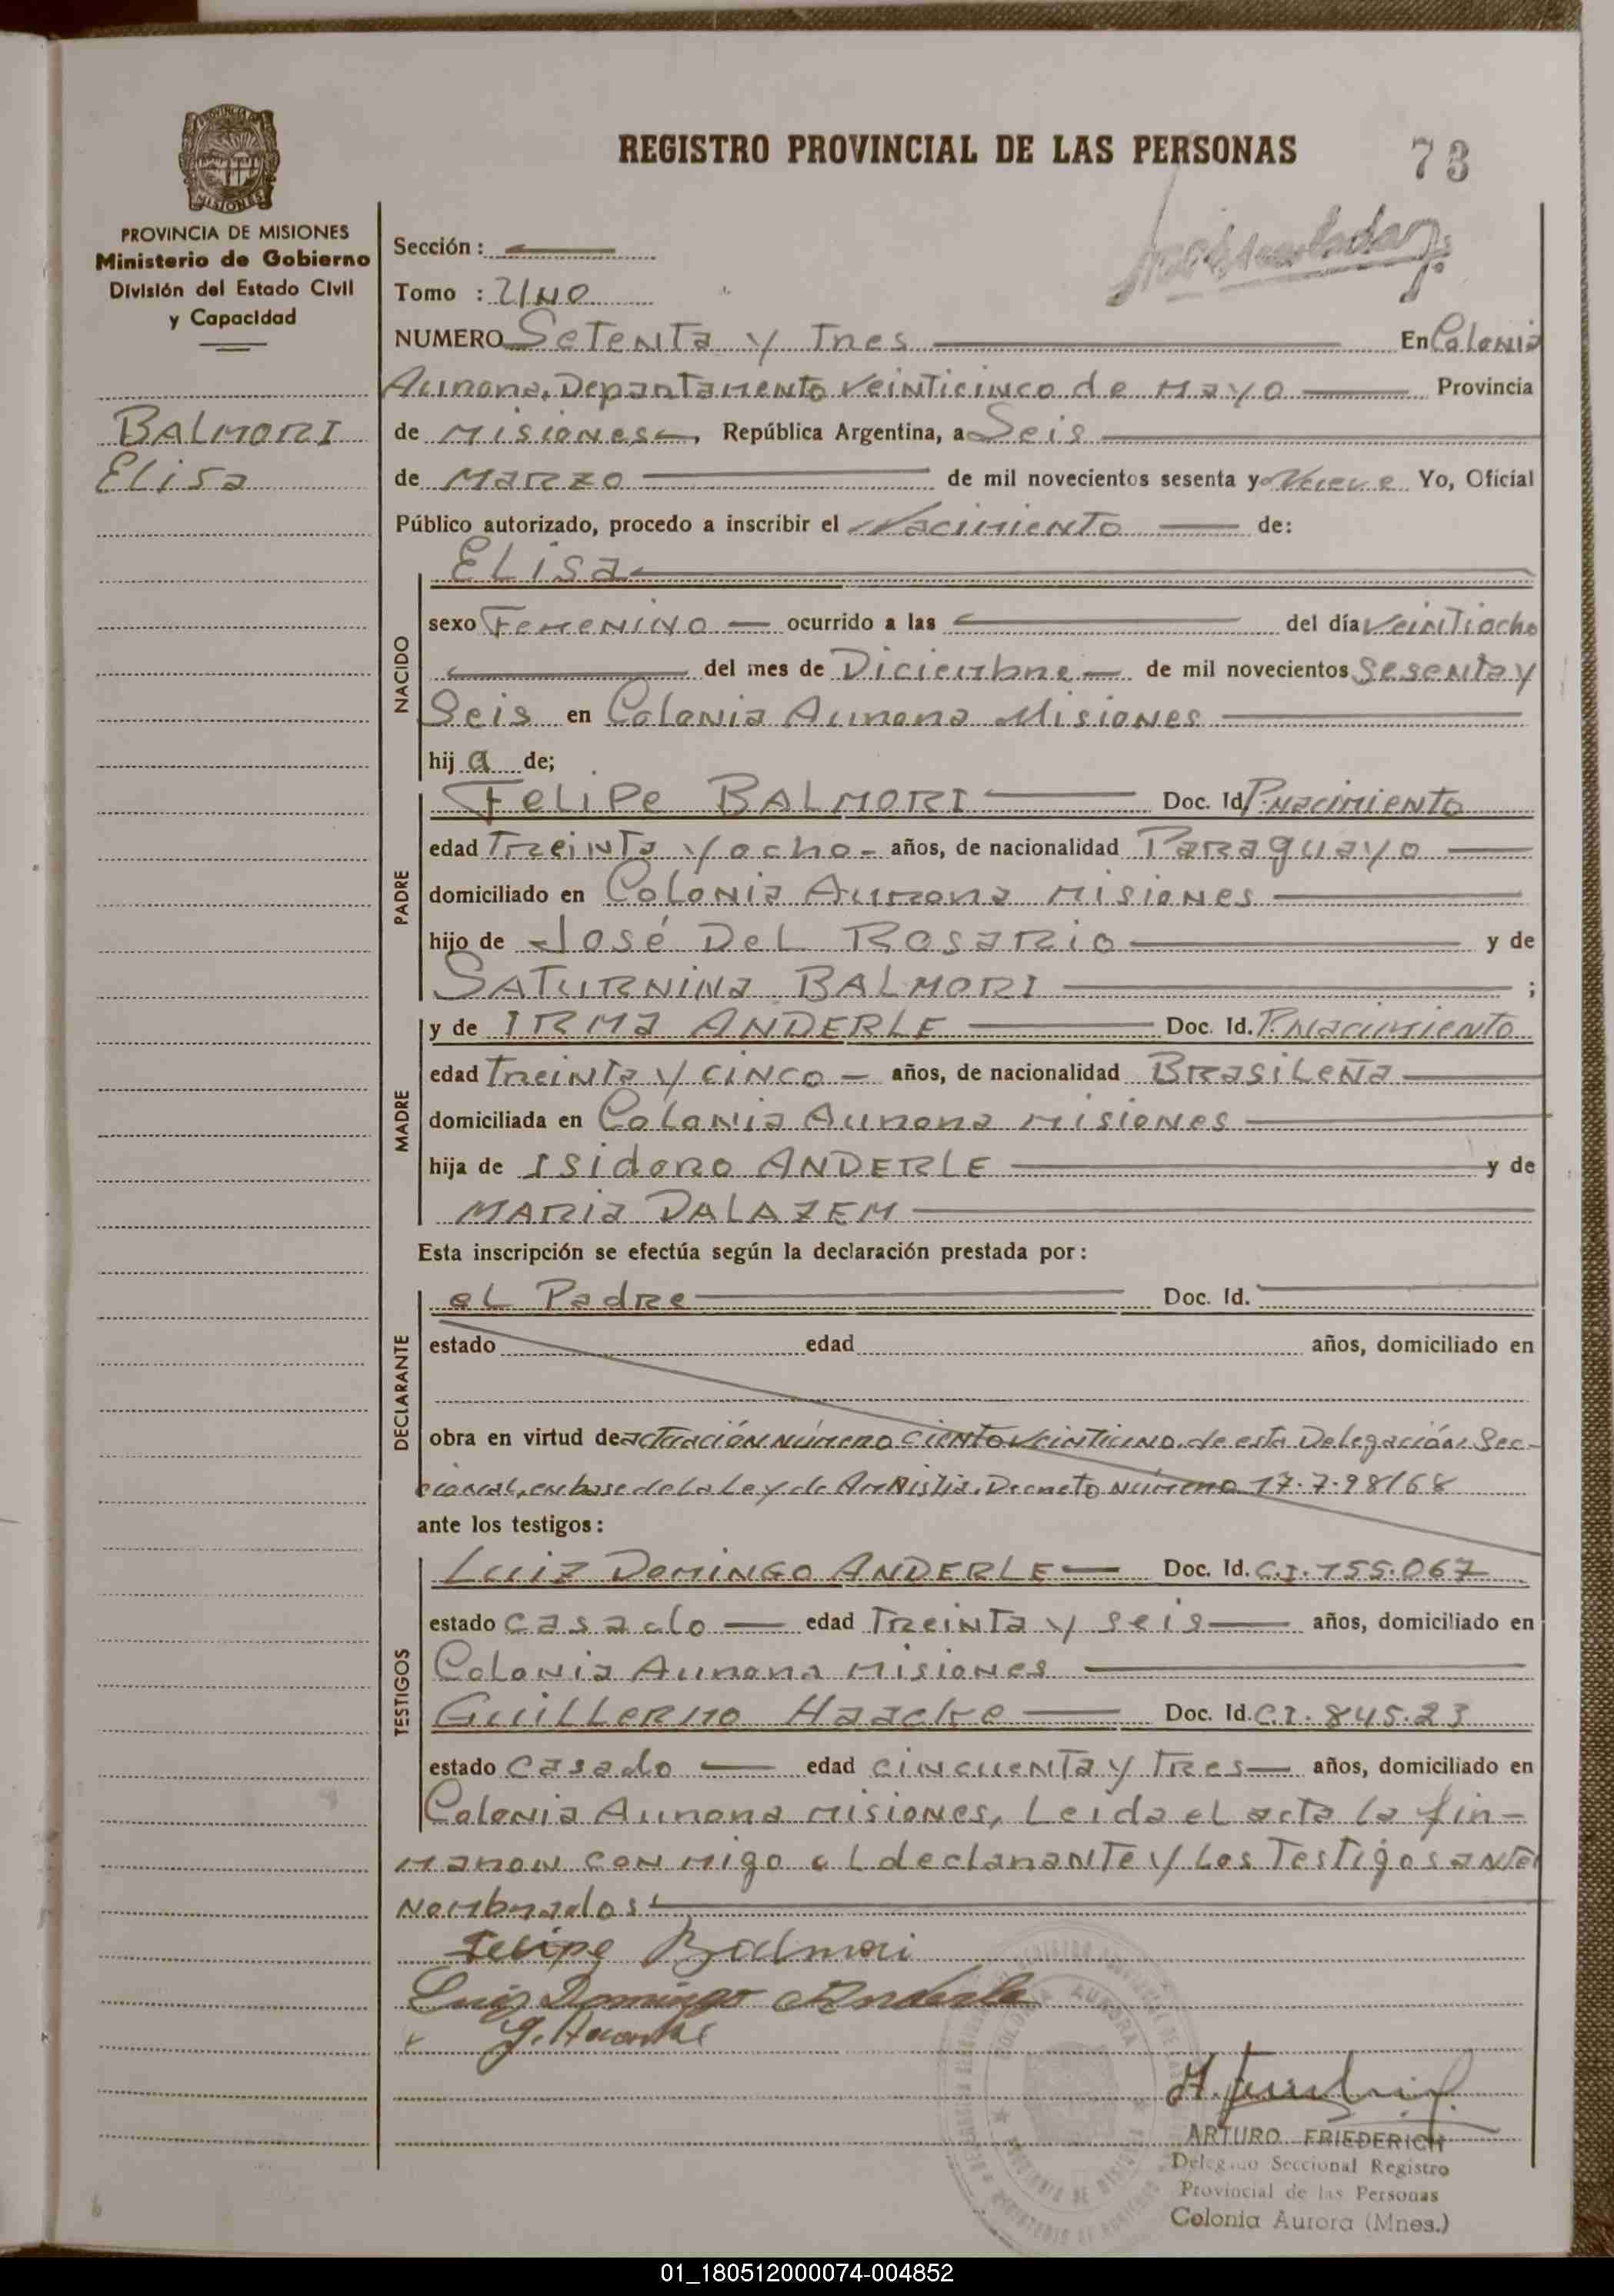 REGISTRO PROVINCIAL DE LAS PERSONAS
73
PROVINCIA DE MISIONES
Ministerio de Gobierno
División del Estado Civil
y Capacidad
BALMORI
Elisa
Sección :
Tomo : UNO
NUMERO Setenta y Tres En Colonia
Aurora, Departamento Veinticinco de Mayo Provincia
de Misiones, República Argentina, a Seis
de Marzo de mil novecientos sesenta y Nueve Yo, Oficial
Público autorizado, procedo a inscribir el Nacimiento de:
Elisa
NACIDO
sexo Femenino ocurrido a las del día Veintiocho
del mes de Diciembre de mil novecientos Sesenta y
Seis en Colonia Aurora Misiones
hij a de;
PADRE
Felipe BALMORI Doc. Id. P. nacimiento
edad Treinta y ocho años, de nacionalidad Paraguayo
domiciliado en Colonia Aurora Misiones
hijo de José Del Rosario y de
SATURNINA BALMORI ;
MADRE
y de IRMA ANDERLE Doc. Id. P. nacimiento
edad Treinta y cinco años, de nacionalidad Brasileña
domiciliada en Colonia Aurora Misiones
hija de Isidoro ANDERLE y de
MARIA DALAZEM
Esta inscripción se efectúa según la declaración prestada por :
DECLARANTE
el Padre Doc. Id.
estado edad años, domiciliado en
obra en virtud de actuación número ciento veintiuno de esta Delegación Sec-
cional, en base de la Ley de Amnistia. Decreto número 17.7.98/68
ante los testigos :
TESTIGOS
Luiz Domingo ANDERLE Doc. Id. C.I. 155.067
estado casado edad Treinta y seis años, domiciliado en
Colonia Aurora Misiones
Guillermo Haacke Doc. Id. C.I. 845.23
estado casado edad cincuenta y tres años, domiciliado en
Colonia Aurora Misiones, Leída el acta la fir-
maron conmigo el declarante y los Testigos ante
Nombrados
Felipe Balmori
Luiz Domingo Anderle
G. Haacke
COLONIA AURORA
PROVINCIA DE MISIONES
ARTURO FRIEDERICH
Delegado Seccional Registro
Provincial de las Personas
Colonia Aurora (Mnes.)
01_180512000074-004852